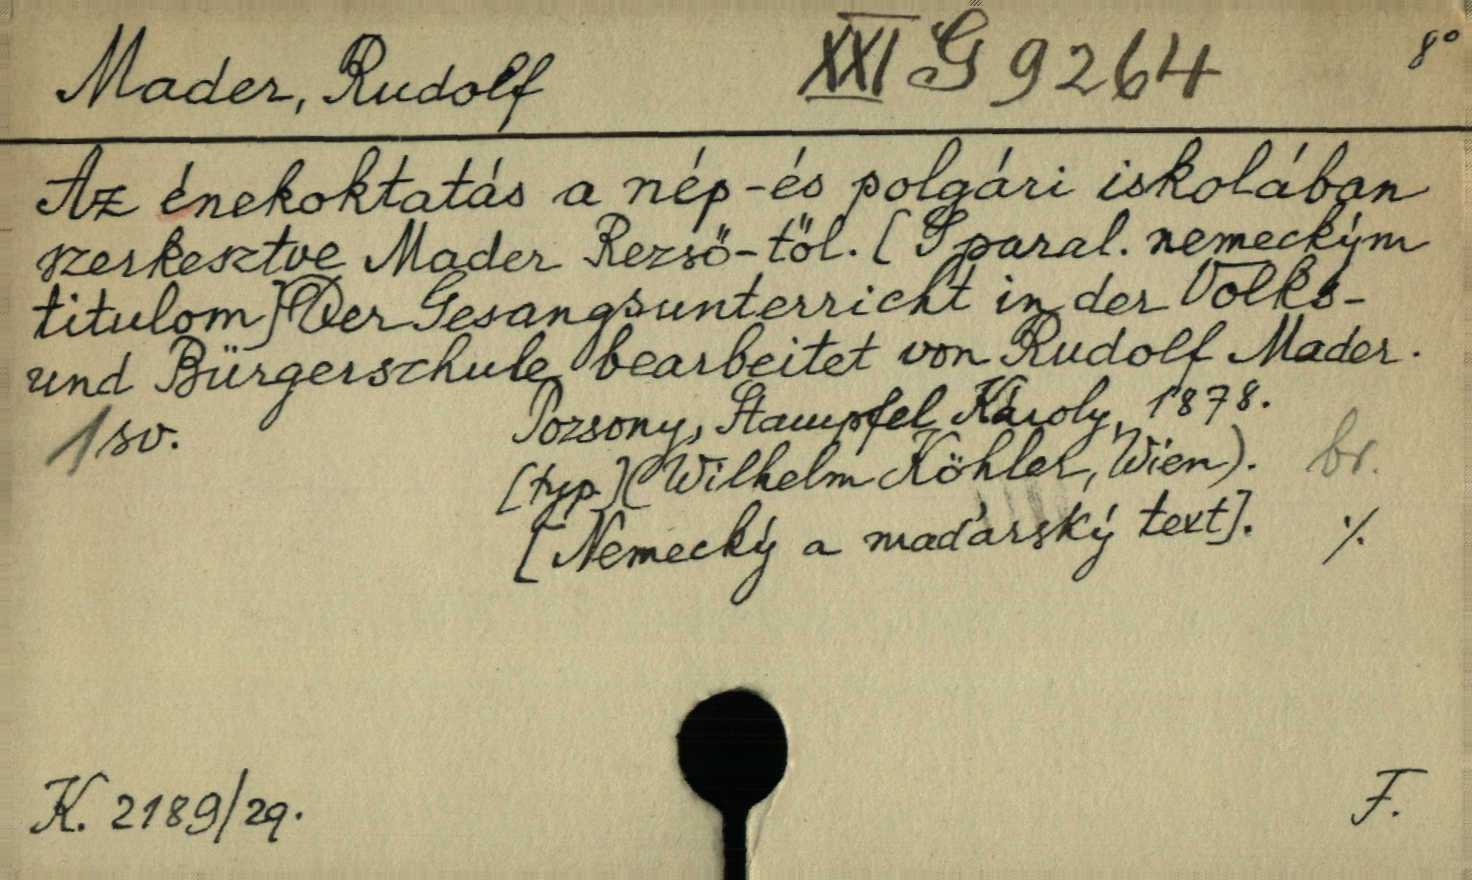 Mader, Rudolf XXI G 9264 8°
Az énekoktatás a nép-és polgári iskolában
szerkesztve Mader Rezsö-töl. [S paral. nemeckým
titulom] Der Gesangsunterricht in der Volks-
und Bürgerschule bearbeitet von Rudolf Mader.
1 sv. Pozsony, Stampfel Károly, 1878.
[typ.] (Wilhelm Köhler, Wien). br.
[Nemecký a maďarský text]. ⁒
K. 2189/29. F.